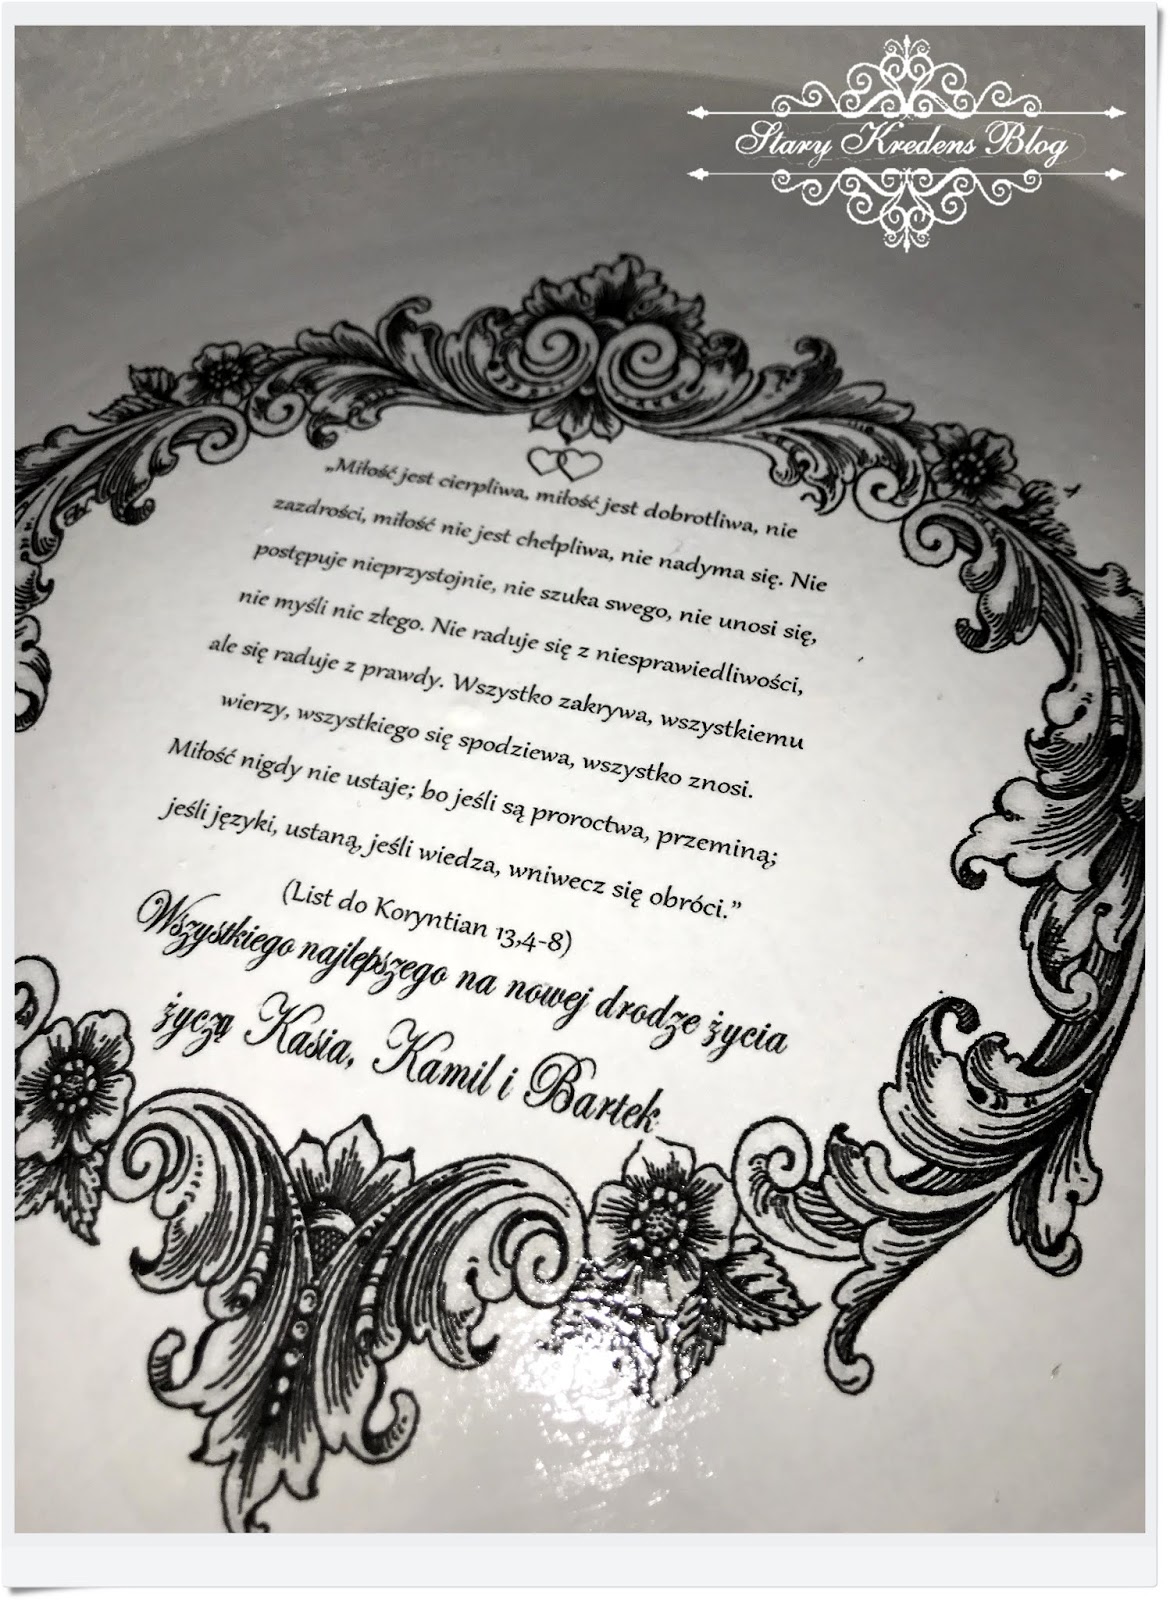 Stary Kredens Blog
„Miłość jest cierpliwa, miłość jest dobrotliwa, nie
zazdrości, miłość nie jest chełpliwa, nie nadyma się. Nie
postępuje nieprzystojnie, nie szuka swego, nie unosi się,
nie myśli nic złego. Nie raduje się z niesprawiedliwości,
ale się raduje z prawdy. Wszystko zakrywa, wszystkiemu
wierzy, wszystkiego się spodziewa, wszystko znosi.
Miłość nigdy nie ustaje; bo jeśli są proroctwa, przeminą;
jeśli języki, ustaną, jeśli wiedza, wniwecz się obróci.”
(List do Koryntian 13,4-8)
Wszystkiego najlepszego na nowej drodze życia
życzą Kasia, Kamil i Bartek